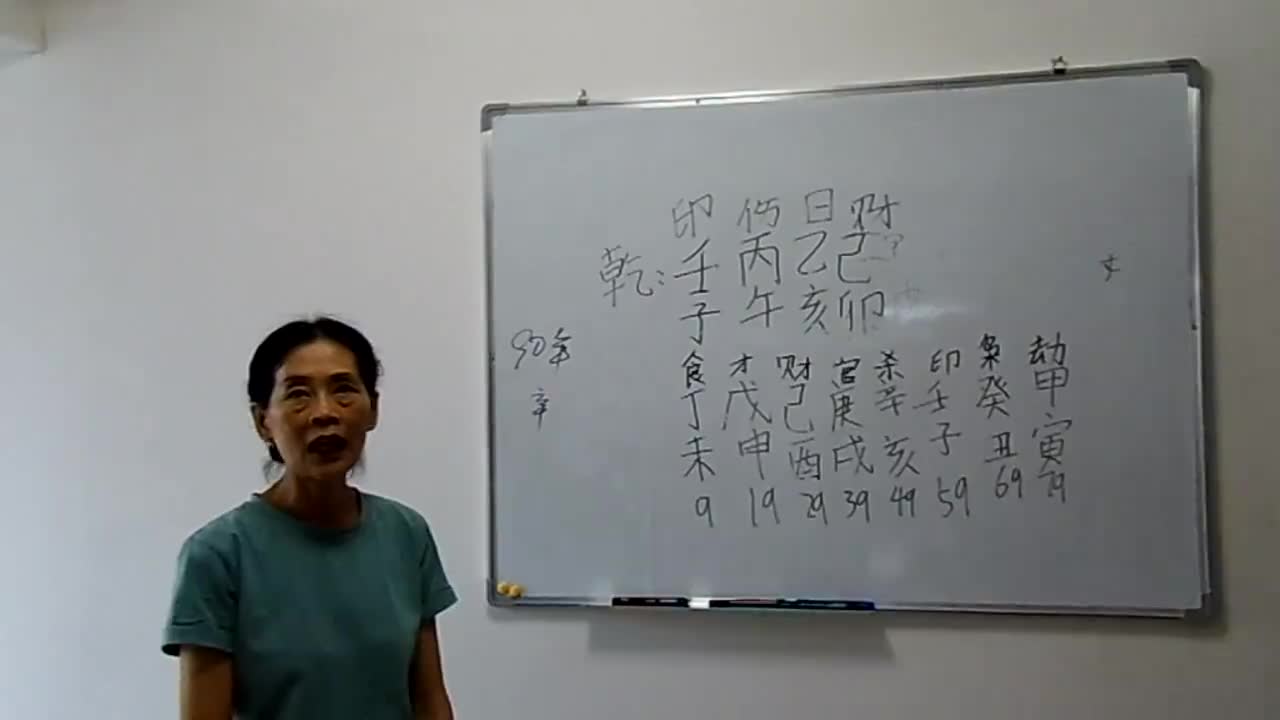 印 伤 日 财
乾: 壬 丙 乙 己
子 午 亥 卯
90年
辛
食 才 财 官 杀 印 枭 劫
丁 戊 己 庚 辛 壬 癸 甲
未 申 酉 戌 亥 子 丑 寅
9 19 29 39 49 59 69 79